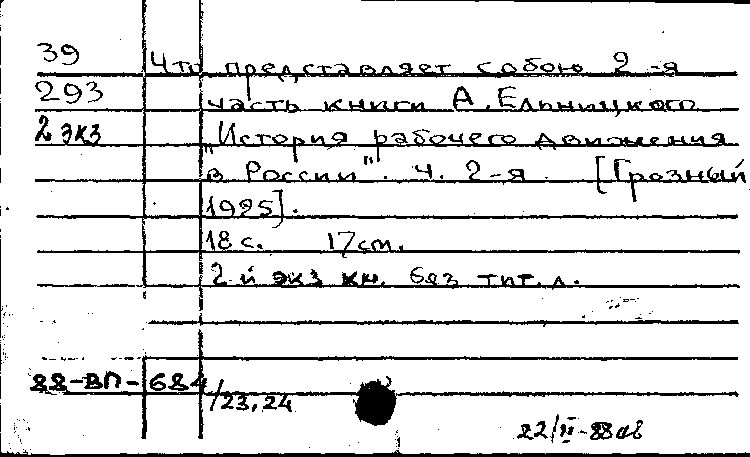 39 Что представляет собою 2-я
293 часть книги А. Ельницкого
2 экз „История рабочего движения
в России". ч. 2-я [Грозный,
1925].
18 с. 17 см.
2-й экз кн. без тит. л.
88-ВП-684/23,24
22/II-88